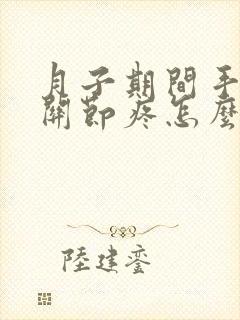 月子期間手
關節疼怎麼
陸建鑾